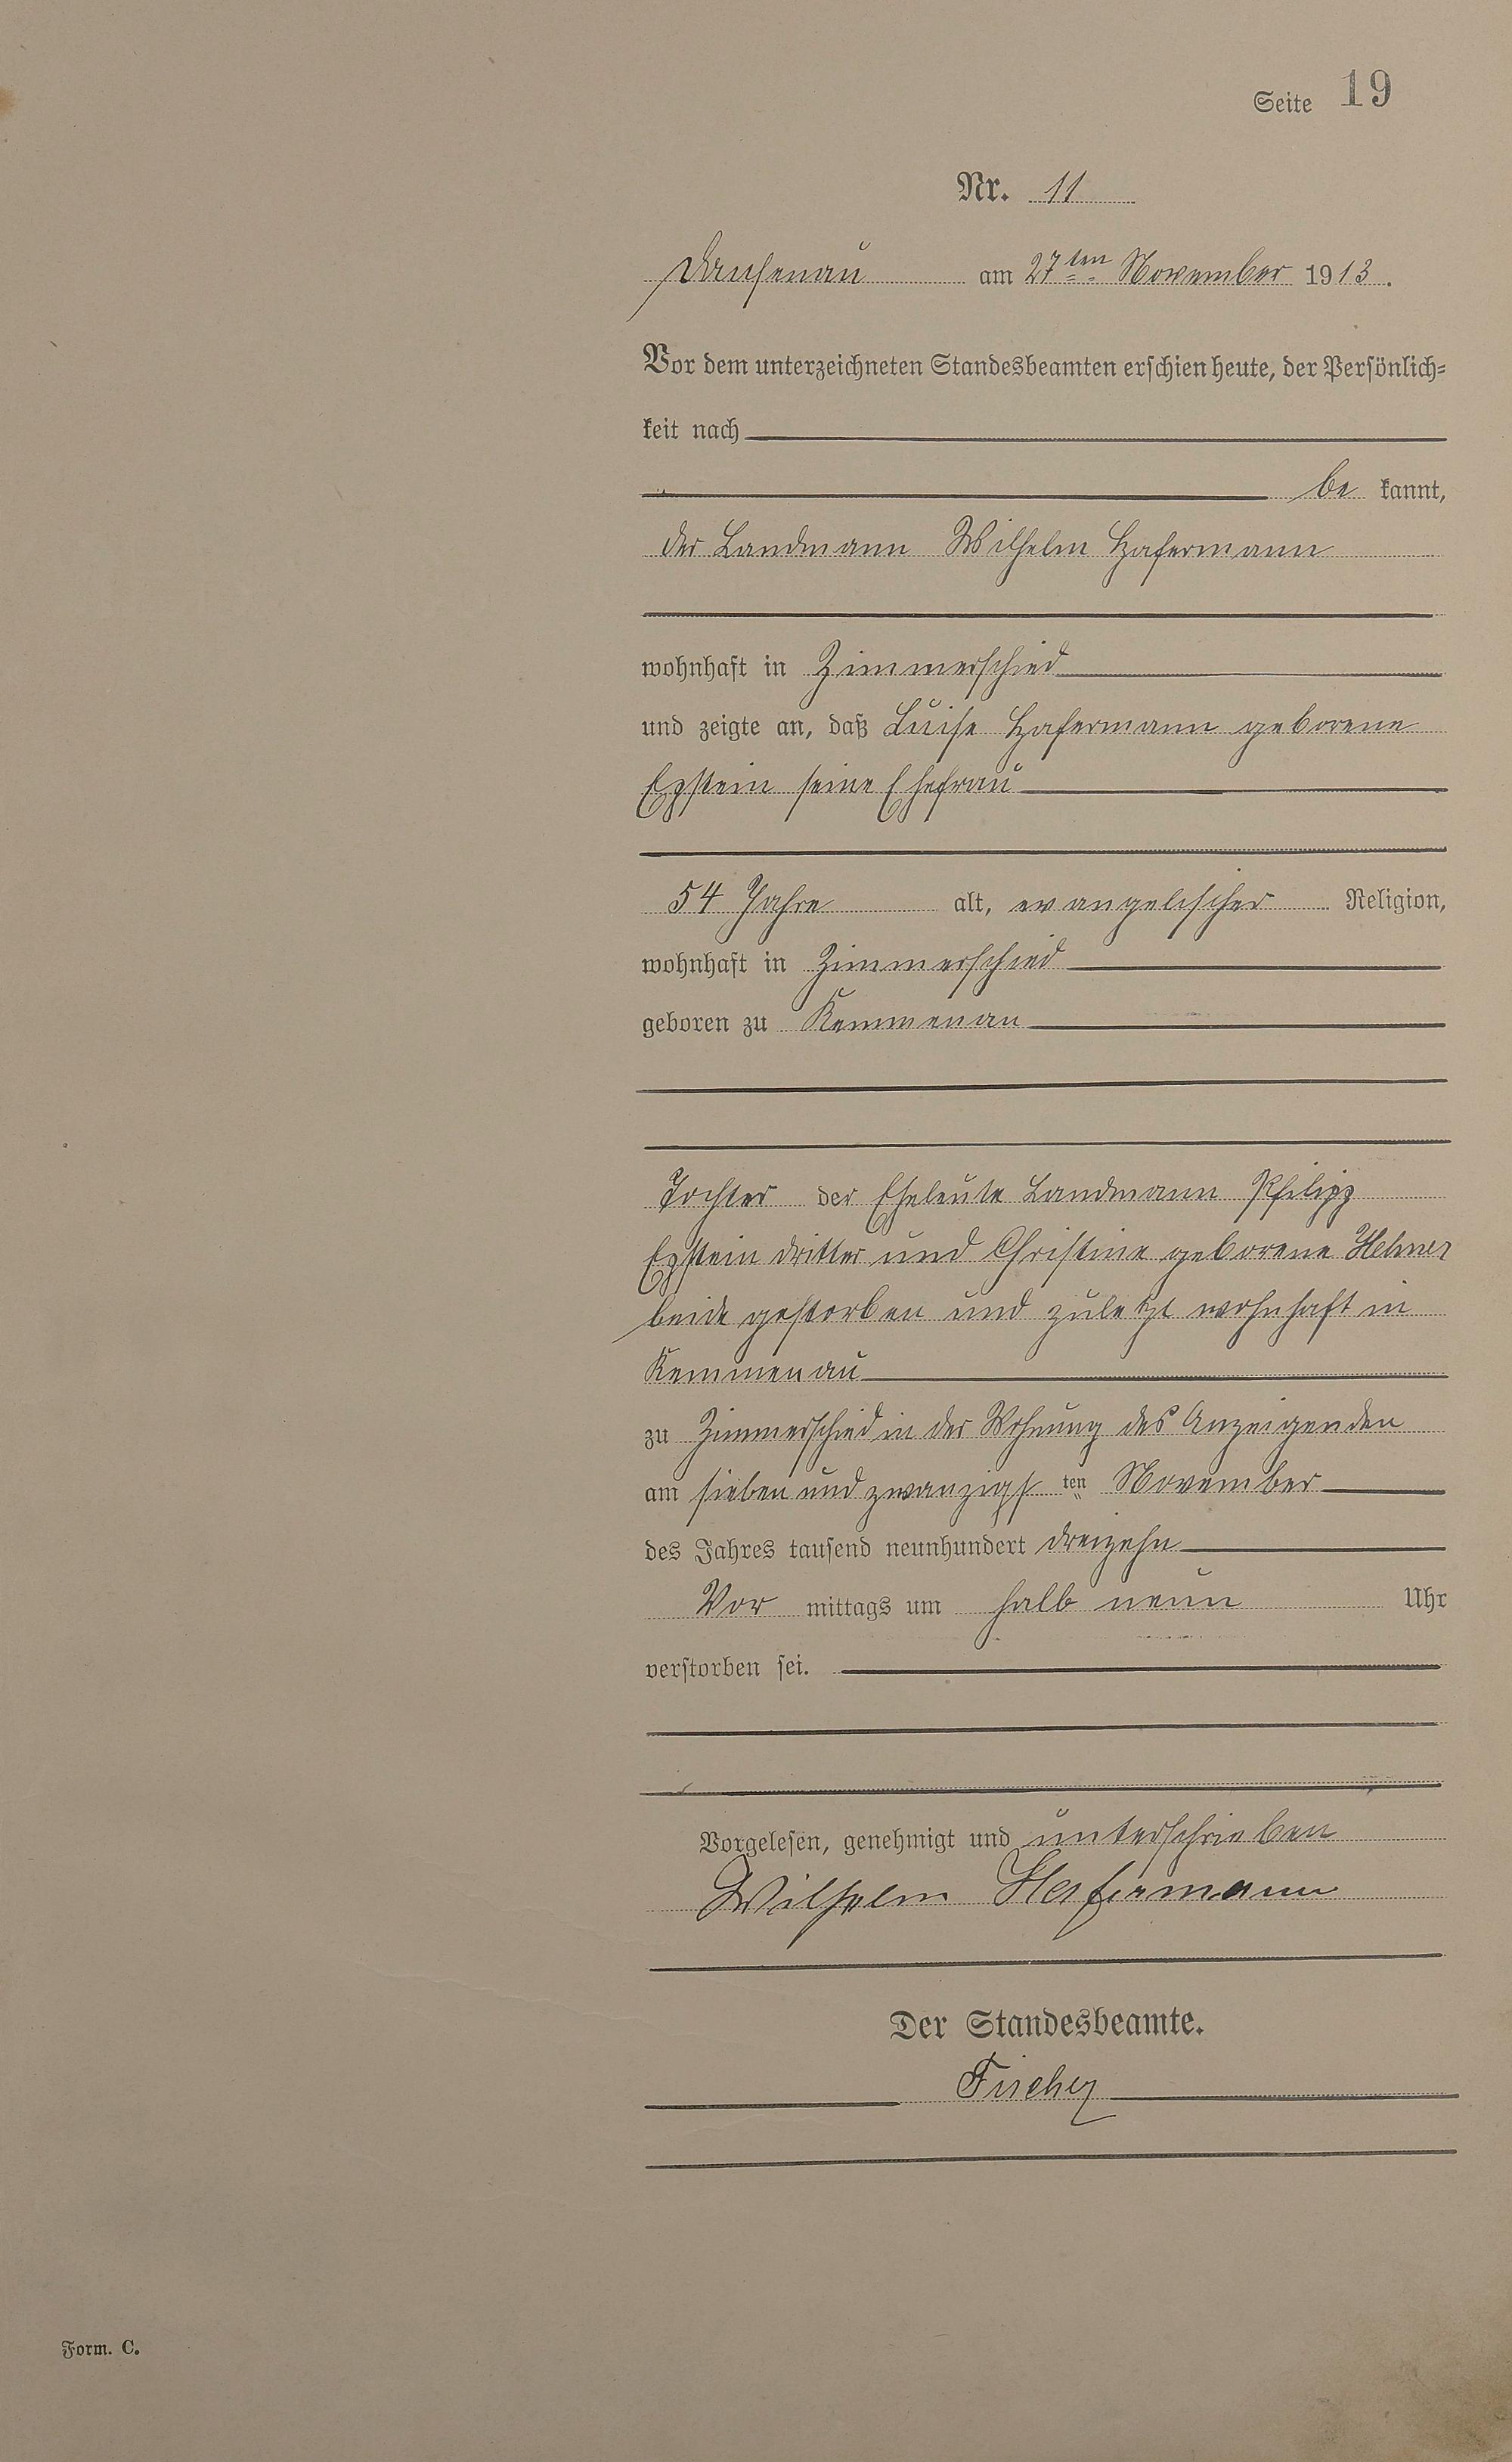 Seite 19
Nr. 11
Dausenau am 27ten November 1913.
Vor dem unterzeichneten Standesbeamten erschien heute, der Persönlich-
keit nach
be kannt,
der Landmann Wilhelm Hafermann
wohnhaft in Zimmerschied
und zeigte an, daß Luise Hafermann geborene
Epstein seine Ehefrau
54 Jahre alt, evangelischer Religion,
wohnhaft in Zimmerschied
geboren zu Kemmenau
Tochter der Eheleute Landmann Philipp
Epstein dritter und Christine geborene Hehner
beide gestorben und zuletzt wohnhaft in
Kemmenau
zu Zimmerschied in der Wohnung des Anzeigenden
am sieben und zwanzigsten November
des Jahres tausend neunhundert dreizehn
Vor mittags um halb neun Uhr
verstorben sei.
Vorgelesen, genehmigt und unterschrieben
Wilhelm Hafermann
Der Standesbeamte.
Fischer
Form. C.